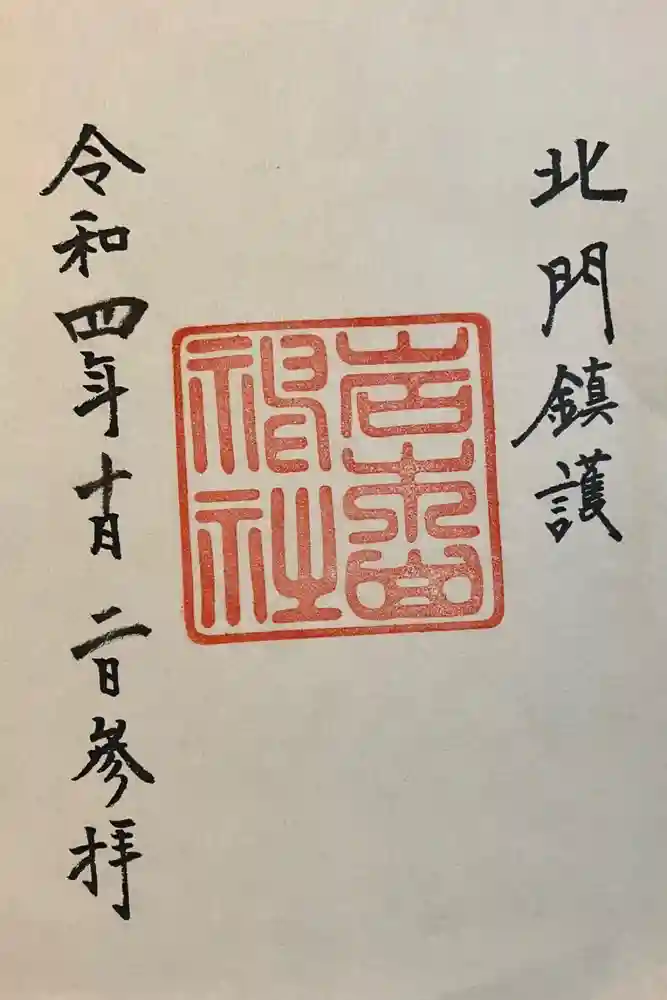 北門鎮護
神社
令和四年十月二日参拝